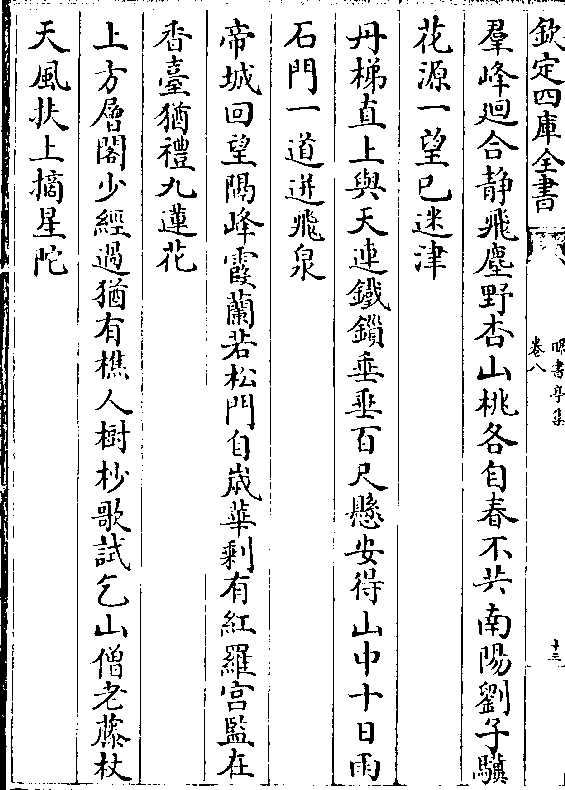 欽定四庫全書
曝書亭集
卷八
十三
羣峰迴合静飛塵野杏山桃各自春不共南陽劉子驥
花源一望已迷津
丹梯直上與天連鐵鎖垂垂百尺懸安得山中十日雨
石門一道迸飛泉
帝城回望隅峰霞蘭若松門自嵗華剩有紅羅宫監在
香臺猶禮九蓮花
上方層閣少經過猶有樵人樹杪歌試乞山僧老藤杖
天風扶上摘星陀